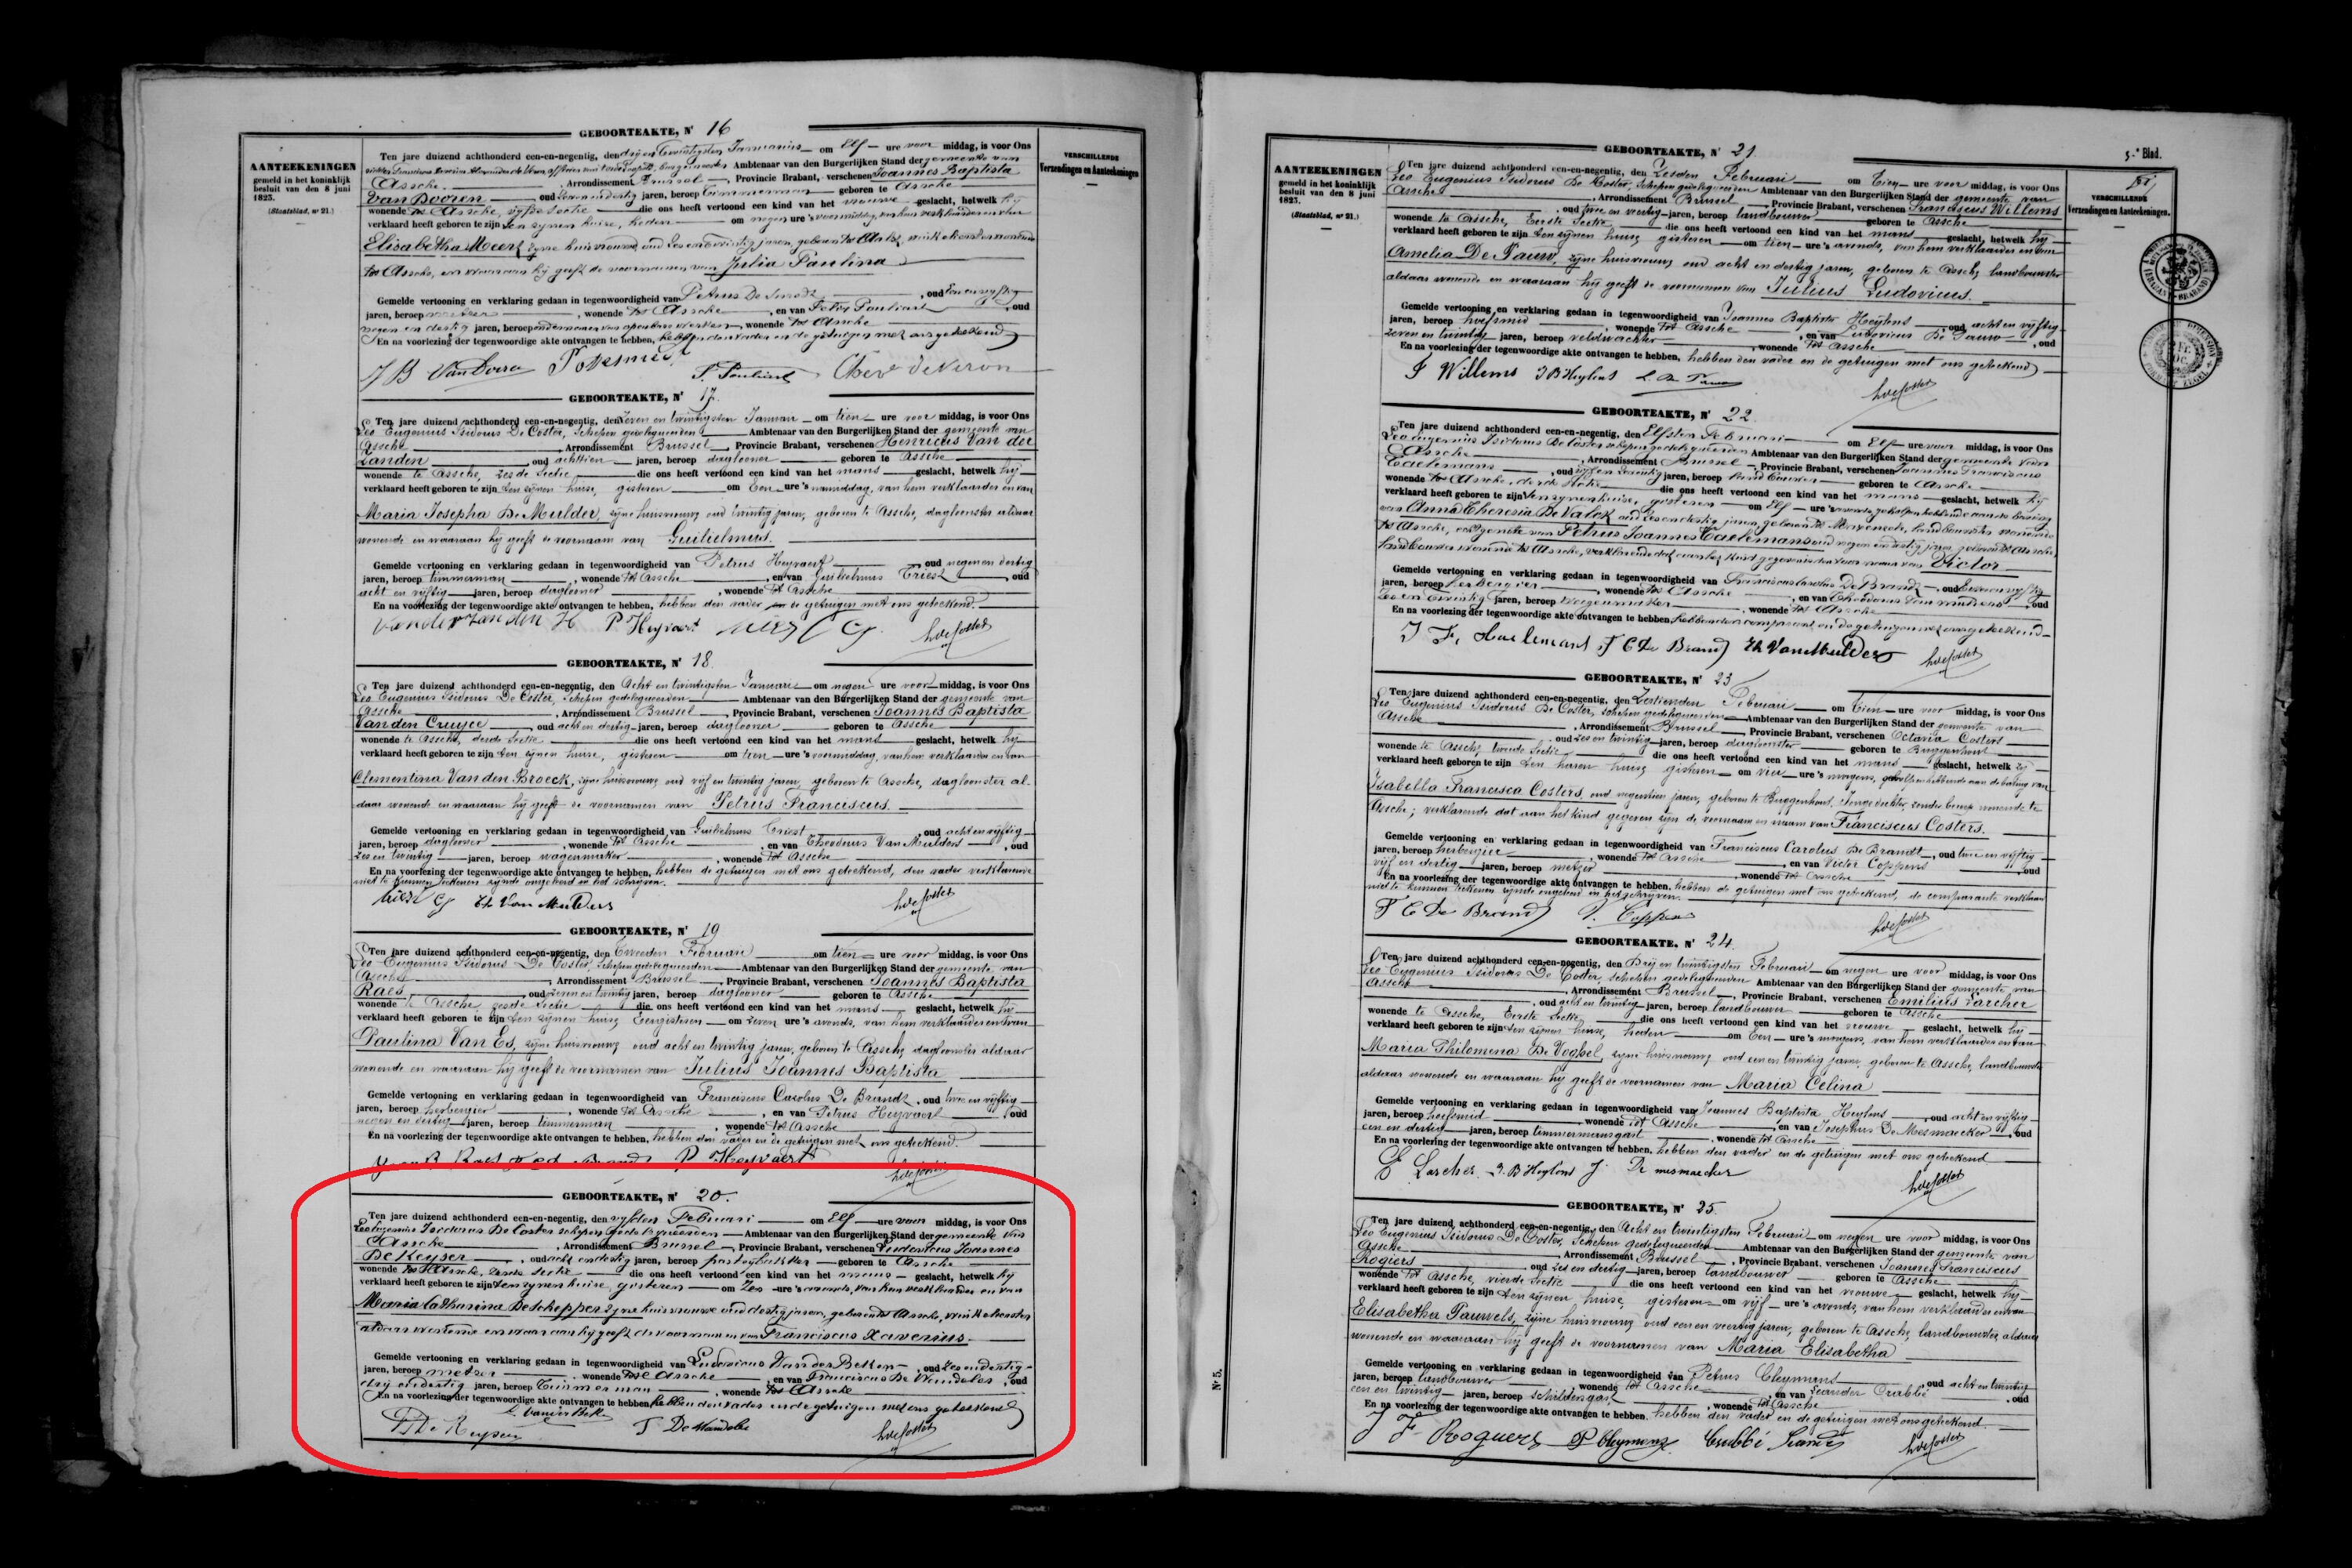 GEBOORTEAKTE, Nr 16
AANTEEKENINGEN
gemeld in het koninklijk
besluit van den 8 juni
1823.
(Staatsblad, nr 21.)
VERSCHILLENDE
Verzendingen en Aanteekeningen
Ten jare duizend achthonderd een-en-negentig, den drij en twintigsten Januarius om Elf ure voor middag, is voor Ons
Ambtenaar van den Burgerlijken Stand der gemeente van
Assche, Arrondissement Brussel, Provincie Brabant, verschenen Joannes Baptista
Van Dooren oud jaren, beroep Timmerman geboren te Assche
wonende tot Assche, vijfde Sectie die ons heeft vertoond een kind van het vrouwe geslacht, hetwelk hij
verklaard heeft geboren te zijn ten zijnen huize, heden om negen ure's voormiddag, van hem verklaarder en van
Elisabetha Meert zijne huisvrouw, oud zes en twintig jaren, geboren tot
tot Assche, en waaraan hij geeft de voornamen van Julia Paulina
Gemelde vertooning en verklaring gedaan in tegenwoordigheid van Petrus De Smedt, oud
jaren, beroep metser, wonende tot Assche, en van Felix Pauliart, oud
negen en dertig jaren, beroep ondernemer van openbare werken, wonende tot Assche
En na voorlezing der tegenwoordige akte ontvangen te hebben, hebben den vader en de getuigen met ons geteekend
GEBOORTEAKTE, Nr 17.
Ten jare duizend achthonderd een-en-negentig, den Zeven en twintigsten Januari om tien ure voor middag, is voor Ons
Leo Eugenius Isidorus De Coster, Schepen gedelegueerden Ambtenaar van den Burgerlijken Stand der gemeente van
Assche, Arrondissement Brussel, Provincie Brabant, verschenen Henricus Van der
Zanden, oud achttien jaren, beroep daglooner geboren te Assche
wonende te Assche, zesde Sectie die ons heeft vertoond een kind van het mans geslacht, hetwelk hij
verklaard heeft geboren te zijn ten zijnen huize, gisteren om Een ure's namiddag, van hem verklaarder en van
Maria Josepha De Mulder, zijne huisvrouw, oud twintig jaren, geboren te Assche, dagloonster aldaar
wonende en waaraan hij geeft de voornaam van Guilielmus.
Gemelde vertooning en verklaring gedaan in tegenwoordigheid van Petrus Heyvaert oud negen en dertig
jaren, beroep timmerman, wonende tot Assche, en van Guilielmus Triest, oud
acht en vijftig jaren, beroep daglooner, wonende tot Assche
En na voorlezing der tegenwoordige akte ontvangen te hebben, hebben den vader en de getuigen met ons geteekend.
P Heyvaert
GEBOORTEAKTE, Nr 18.
Ten jare duizend achthonderd een-en-negentig, den Acht en twintigsten Januari om negen ure voor middag, is voor Ons
Leo Eugenius Isidorus De Coster, Schepen gedelegueerden Ambtenaar van den Burgerlijken Stand der gemeente van
Assche, Arrondissement Brussel, Provincie Brabant, verschenen Joannes Baptista
Van den Cruyce, oud acht en dertig jaren, beroep daglooner geboren te Assche
wonende te Assche, derde Sectie die ons heeft vertoond een kind van het mans geslacht, hetwelk hij
verklaard heeft geboren te zijn ten zijnen huize, gisteren om tien ure's voormiddag, van hem verklaarder en van
Clementina Van den Broeck, zijne huisvrouw, oud vijf en twintig jaren, geboren te Assche, dagloonster al-
daar wonende en waaraan hij geeft de voornamen van Petrus Franciscus.
Gemelde vertooning en verklaring gedaan in tegenwoordigheid van Guilielmus Triest, oud acht en vijftig
jaren, beroep daglooner, wonende tot Assche, en van Theodorus Van Mulders, oud
zes en twintig jaren, beroep wagenmaker, wonende tot Assche
En na voorlezing der tegenwoordige akte ontvangen te hebben, hebben de getuigen met ons geteekend, den vader verklaarde
niet te kunnen teekenen zijnde ongeleerd in het schrijven.
Th Van Mulders
GEBOORTEAKTE, Nr 19
Ten jare duizend achthonderd een-en-negentig, den Tweeden Februari om tien ure voor middag, is voor Ons
Leo Eugenius Isidorus De Coster, Schepen gedelegueerden Ambtenaar van den Burgerlijken Stand der gemeente van
Assche, Arrondissement Brussel, Provincie Brabant, verschenen Joannes Baptista
Raes, oud zeven en twintig jaren, beroep daglooner geboren te Assche
wonende te Assche, zesde Sectie die ons heeft vertoond een kind van het mans geslacht, hetwelk hij
verklaard heeft geboren te zijn ten zijnen huize, Eergisteren om zeven ure's avonds, van hem verklaarder en van
Paulina Van Es, zijne huisvrouw, oud acht en twintig jaren, geboren te Assche, dagloonster aldaar
wonende en waaraan hij geeft de voornamen van Julius Joannes Baptista
Gemelde vertooning en verklaring gedaan in tegenwoordigheid van Franciscus Carolus De Brandt, oud twee en vijftig
jaren, beroep herbergier, wonende tot Assche, en van Petrus Heyvaert, oud
negen en dertig jaren, beroep timmerman, wonende tot Assche
En na voorlezing der tegenwoordige akte ontvangen te hebben, hebben den vader en de getuigen met ons geteekend.
P Heyvaert
GEBOORTEAKTE, Nr 20.
Ten jare duizend achthonderd een-en-negentig, den vijfden Februari om Elf ure voor middag, is voor Ons
Leo Eugenius Isidorus De Coster schepen gedelegueerden Ambtenaar van den Burgerlijken Stand der gemeente van
Assche, Arrondissement Brussel, Provincie Brabant, verschenen Ludovicus Joannes
De Keyser, oud acht en dertig jaren, beroep pasteybakker geboren te Assche
wonende tot Assche, Sectie die ons heeft vertoond een kind van het mans geslacht, hetwelk hij
verklaard heeft geboren te zijn ten zijnen huize, gisteren om Zes ure's avonds, van hem verklaarder en van
Maria Catharina De Schepper zijne huisvrouw oud dertig jaren, geboren te Assche, winkelierster
aldaar wonende en waaraan hij geeft de voornamen van Franciscus Xaverius.
Gemelde vertooning en verklaring gedaan in tegenwoordigheid van Ludovicus Van der Beken, oud zes en dertig
jaren, beroep metser, wonende tot Assche, en van Franciscus De Wandeler, oud
drij en dertig jaren, beroep Timmerman, wonende tot Assche
En na voorlezing der tegenwoordige akte ontvangen te hebben hebben den vader en de getuigen met ons geteekend
GEBOORTEAKTE, Nr 21.
5e Blad.
AANTEEKENINGEN
gemeld in het koninklijk
besluit van den 8 juni
1823.
(Staatsblad, nr 21.)
VERSCHILLENDE
Verzendingen en Aanteekeningen.
Ten jare duizend achthonderd een-en-negentig, den Zesden Februari om Tien ure voor middag, is voor Ons
Leo Eugenius Isidorus De Coster, Schepen gedelegueerden Ambtenaar van den Burgerlijken Stand der gemeente van
Assche, Arrondissement Brussel, Provincie Brabant, verschenen Franciscus Willems
, oud twee en veertig jaren, beroep landbouwer geboren te Assche
wonende te Assche, Eerste Sectie die ons heeft vertoond een kind van het mans geslacht, hetwelk hij
verklaard heeft geboren te zijn ten zijnen huize, gisteren om tien ure's avonds, van hem verklaarder en van
Amelia De Pauw, zijne huisvrouw, oud acht en dertig jaren, geboren te Assche, landbouwster
aldaar wonende en waaraan hij geeft de voornamen van Julius Ludovicus.
Gemelde vertooning en verklaring gedaan in tegenwoordigheid van Joannes Baptista Heylens, oud acht en vijftig
jaren, beroep hoefsmid, wonende tot Assche, en van Ludovicus De Pauw, oud
zeven en twintig jaren, beroep veldwachter, wonende tot Assche
En na voorlezing der tegenwoordige akte ontvangen te hebben, hebben den vader en de getuigen met ons geteekend
F Willems J B Heylens L De Pauw
GEBOORTEAKTE, Nr 22.
Ten jare duizend achthonderd een-en-negentig, den Elfsten Februari om Elf ure voor middag, is voor Ons
Leo Eugenius Isidorus De Coster schepen gedelegueerden Ambtenaar van den Burgerlijken Stand der gemeente van
Assche, Arrondissement Brussel, Provincie Brabant, verschenen Joannes Franciscus
, oud jaren, beroep landbouwer geboren te Assche
wonende tot Assche, derde Sectie die ons heeft vertoond een kind van het mans geslacht, hetwelk hij
verklaard heeft geboren te zijn ten zijnen huize, gisteren om Elf ure's
van Anna Theresia De Valck oud zes en dertig jaren, geboren te landbouwster wonende
te Assche, echtgenote van Petrus Joannes oud negen en dertig jaren geboren te Assche,
landbouwer wonende tot Assche, verklarende dat aan het kind gegeven is den voornaam van Victor
Gemelde vertooning en verklaring gedaan in tegenwoordigheid van Franciscus Carolus De Brandt, oud
jaren, beroep herbergier, wonende tot Assche, en van Theodorus Van Mulders, oud
zes en twintig jaren, beroep wagenmaker, wonende tot Assche
En na voorlezing der tegenwoordige akte ontvangen te hebben hebben den comparant en de getuigen met ons geteekend
GEBOORTEAKTE, Nr 23
Ten jare duizend achthonderd een-en-negentig, den Zestienden Februari om Tien ure voor middag, is voor Ons
Leo Eugenius Isidorus De Coster, schepen gedelegueerden Ambtenaar van den Burgerlijken Stand der gemeente van
Assche, Arrondissement Brussel, Provincie Brabant, verschenen Octavia Costers
, oud zes en twintig jaren, beroep dagloonster geboren te Buggenhout
wonende te Assche, tweede Sectie die ons heeft vertoond een kind van het mans geslacht, hetwelk zij
verklaard heeft geboren te zijn ten haren huize, gisteren om vier ure's morgens, geholpen hebbende aan de baring van
Isabella Francisca Costers, oud negentien jaren, geboren te Buggenhout, Jonge dochter, zonder beroep wonende te
Assche; verklarende dat aan het kind gegeven zijn de voornaam en naam van Franciscus Costers.
Gemelde vertooning en verklaring gedaan in tegenwoordigheid van Franciscus Carolus De Brandt, oud twee en vijftig
jaren, beroep herbergier, wonende tot Assche, en van Victor Coppens, oud
vijf en dertig jaren, beroep metzer, wonende tot Assche
En na voorlezing der tegenwoordige akte ontvangen te hebben, hebben de getuigen met ons geteekend, de comparante verklaar
niet te kunnen teekenen zijnde ongeleerd in het schrijven.
GEBOORTEAKTE, Nr 24.
Ten jare duizend achthonderd een-en-negentig, den Drij en twintigsten Februari om negen ure voor middag, is voor Ons
Leo Eugenius Isidorus De Coster, schepen gedelegueerden Ambtenaar van den Burgerlijken Stand der gemeente van
Assche, Arrondissement Brussel, Provincie Brabant, verschenen Emilius Larcher
, oud acht en twintig jaren, beroep landbouwer geboren te Assche
wonende te Assche, Eerste Sectie die ons heeft vertoond een kind van het vrouwe geslacht, hetwelk hij
verklaard heeft geboren te zijn ten zijnen huize, heden om Een ure's morgens, van hem verklaarder en van
Maria Philomena De Voghel, zijne huisvrouw, oud een en twintig jaren, geboren te Assche, landbouwster
aldaar wonende en waaraan hij geeft de voornamen van Maria Celina
Gemelde vertooning en verklaring gedaan in tegenwoordigheid van Joannes Baptista Heylens, oud acht en vijftig
jaren, beroep hoefsmid, wonende tot Assche, en van Josephus De Mesmaecker, oud
een en dertig jaren, beroep timmermansgast, wonende tot Assche
En na voorlezing der tegenwoordige akte ontvangen te hebben, hebben den vader en de getuigen met ons geteekend
E Larcher J. B Heylens J De mesmaecker
GEBOORTEAKTE, Nr 25.
Ten jare duizend achthonderd een-en-negentig, den Acht en twintigsten Februari om negen ure voor middag, is voor Ons
Leo Eugenius Isidorus De Coster, Schepen gedelegueerden Ambtenaar van den Burgerlijken Stand der gemeente van
Assche, Arrondissement Brussel, Provincie Brabant, verschenen Joannes Franciscus
Rogiers, oud zes en dertig jaren, beroep landbouwer geboren te Assche
wonende tot Assche, vierde Sectie die ons heeft vertoond een kind van het vrouwe geslacht, hetwelk hij
verklaard heeft geboren te zijn ten zijnen huize, gisteren om vijf ure's avonds, van hem verklaarder en van
Elisabetha Pauwels, zijne huisvrouw, oud een en veertig jaren, geboren te Assche, landbouwster, aldaar
wonende en waaraan hij geeft de voornamen van Maria Elisabetha
Gemelde vertooning en verklaring gedaan in tegenwoordigheid van Petrus Cleymans, oud acht en twintig
jaren, beroep landbouwer, wonende tot Assche, en van Leander Crabbé, oud
een en twintig jaren, beroep schildersgast, wonende tot Assche
En na voorlezing der tegenwoordige akte ontvangen te hebben, hebben den vader en de getuigen met ons geteekend
Nr 5.